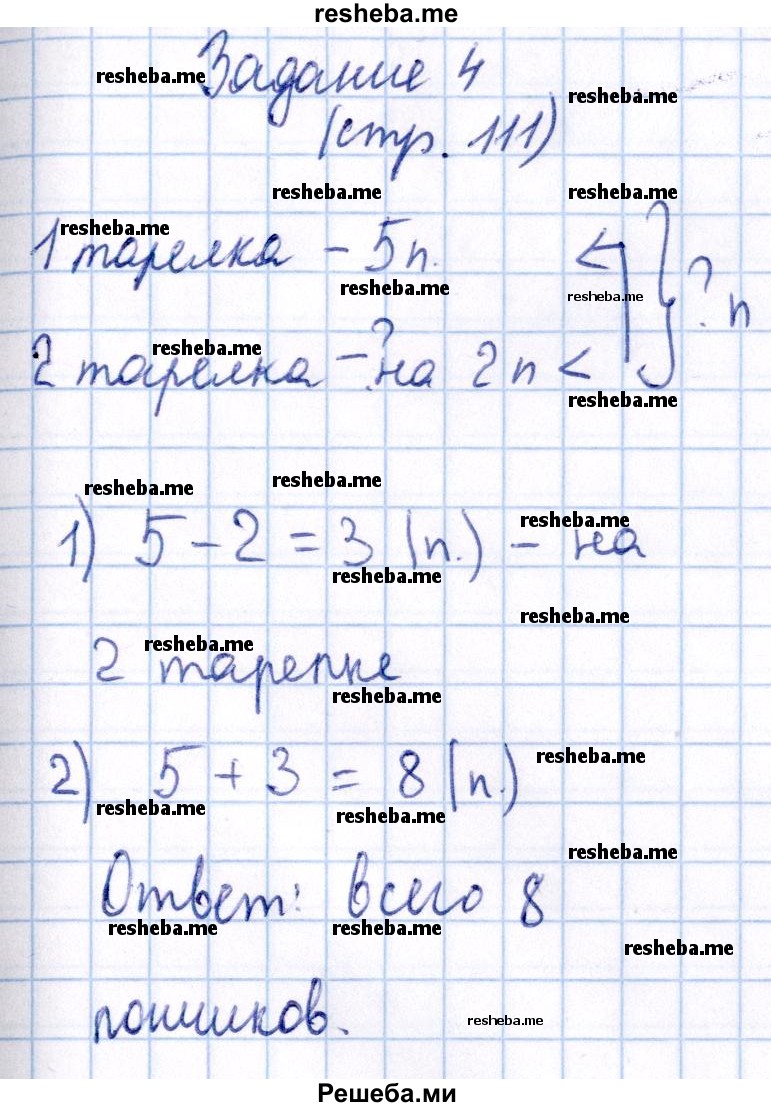 resheba.me
resheba.me
Задание 4
resheba.me
(стр. 111)
resheba.me resheba.me
resheba.me
1 тарелка - 5 п. <
resheba.me
resheba.me
} ? п
resheba.me
2 тарелка - ? на 2 п <
resheba.me
resheba.me resheba.me
resheba.me
1) 5 - 2 = 3 (п.) - на
resheba.me
resheba.me
resheba.me
2 тарелке
resheba.me
resheba.me
2) 5 + 3 = 8 (п.)
resheba.me resheba.me
resheba.me
Ответ: всего 8
resheba.me resheba.me
resheba.me
пончиков.
resheba.me
Решеба.ми